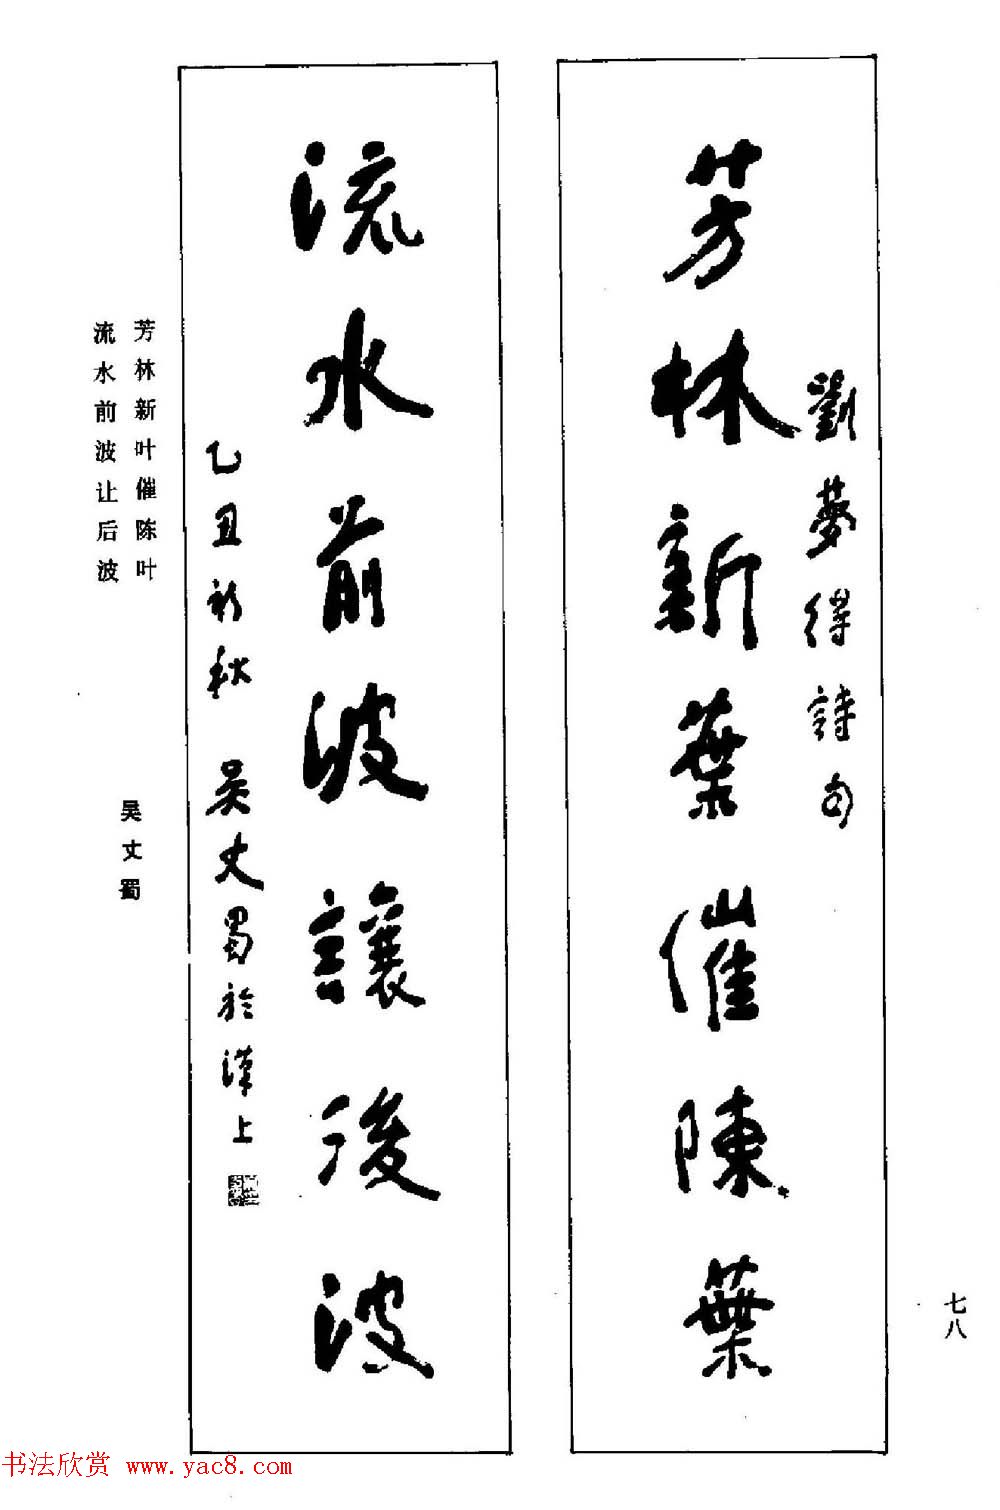 芳林新葉催陳葉
劉夢得詩句
流水前波讓後波
乙丑初秋 吴丈蜀於漢上
芳林新叶催陈叶
流水前波让后波
吴丈蜀
七八
书法欣赏 www.yac8.com